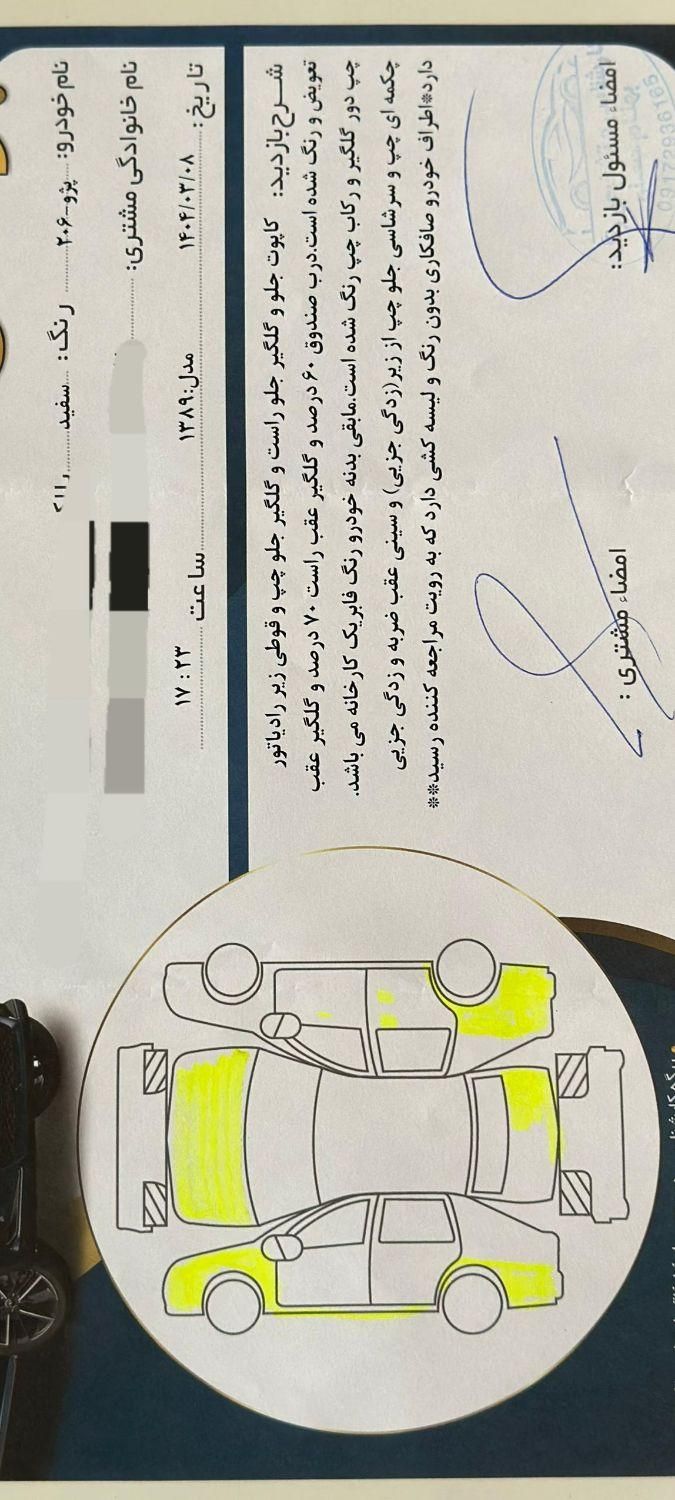 نام خودرو: پژو-۲۰۶ رنگ: سفید
نام خانوادگی مشتری:
تاریخ: ۱۴۰۴/۰۳/۰۸ مدل: ۱۳۸۹ ساعت ۱۷ : ۲۳
شرح بازدید: کاپوت جلو و گلگیر جلو راست و گلگیر جلو چپ و قوطی زیر رادیاتور
تعویض و رنگ شده است.درب صندوق ۶۰ درصد و گلگیر عقب راست ۷۰ درصد و گلگیر عقب
چپ دور گلگیر و رکاب چپ رنگ شده است.مابقی بدنه خودرو رنگ فابریک کارخانه می باشد.
چکمه ای چپ و سرشاسی جلو چپ از زیر(زدگی جزیی) و سینی عقب ضربه و زدگی جزیی
دارد*اطراف خودرو صافکاری بدون رنگ و لیسه کشی دارد که به رویت مراجعه کننده رسید**
امضاء مسئول بازدید:
امضاء مشتری :